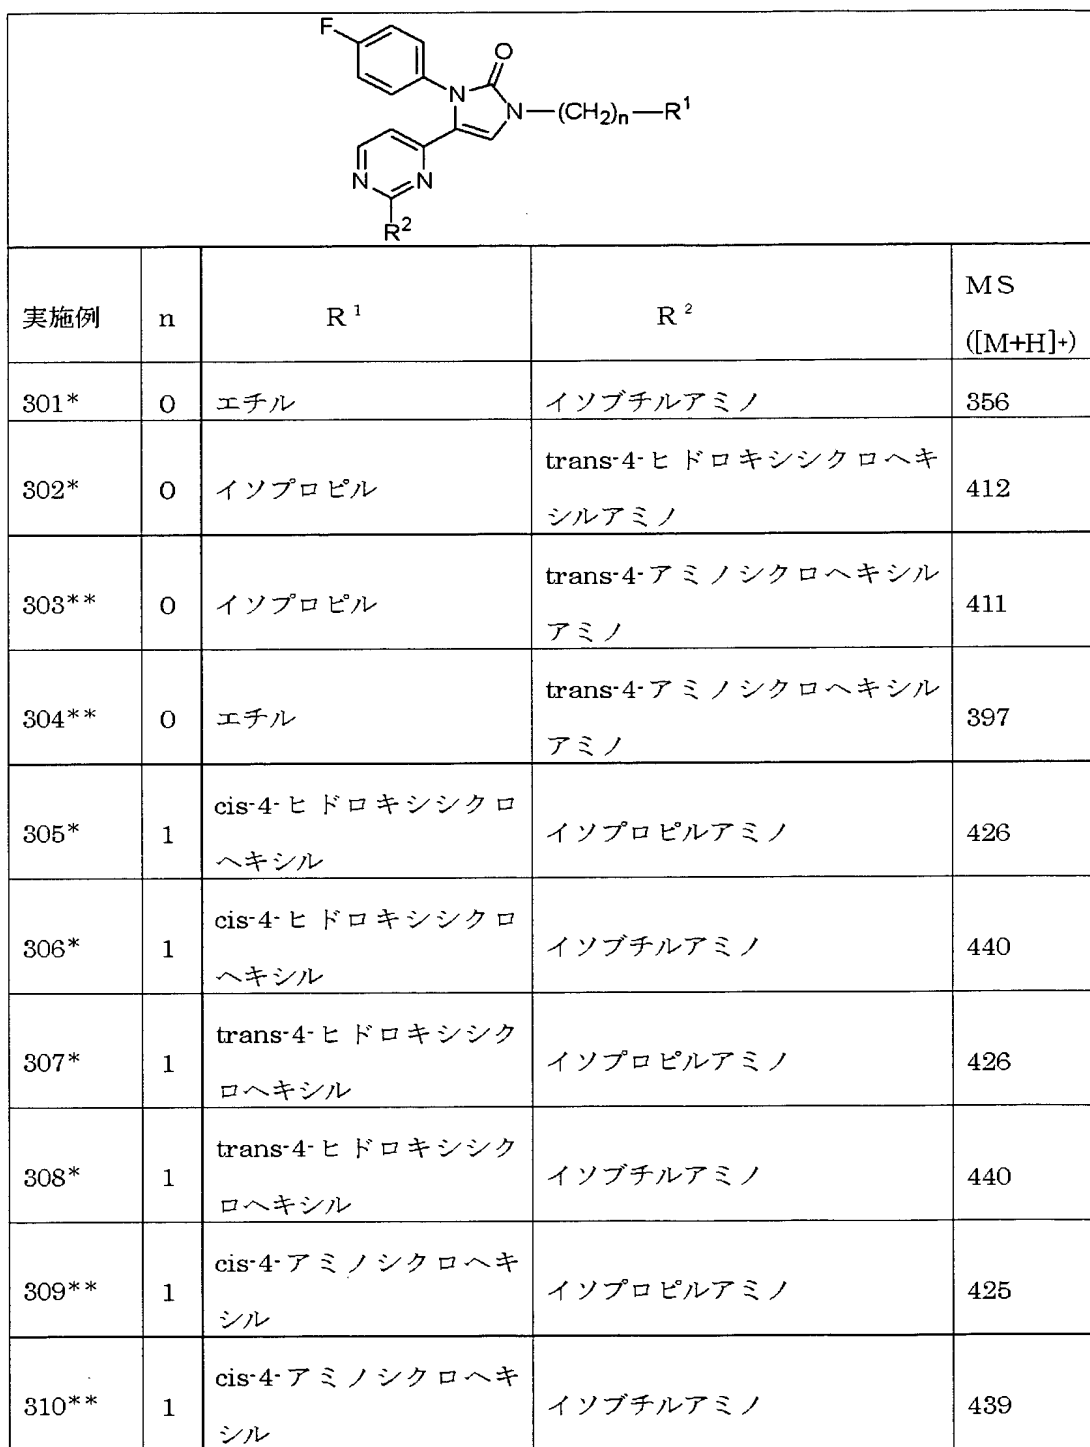 F
O
N
N—(CH2)n—R¹
N
N
R²
実施例
n
R¹
R²
MS
([M+H]+)
301*
0
エチル
イソブチルアミノ
356
302*
0
イソプロピル
trans-4-ヒドロキシシクロヘキ
シルアミノ
412
303**
0
イソプロピル
trans-4-アミノシクロヘキシル
アミノ
411
304**
0
エチル
trans-4-アミノシクロヘキシル
アミノ
397
305*
1
cis-4-ヒドロキシシクロ
ヘキシル
イソプロピルアミノ
426
306*
1
cis-4-ヒドロキシシクロ
ヘキシル
イソブチルアミノ
440
307*
1
trans-4-ヒドロキシシク
ロヘキシル
イソプロピルアミノ
426
308*
1
trans-4-ヒドロキシシク
ロヘキシル
イソブチルアミノ
440
309**
1
cis-4-アミノシクロヘキ
シル
イソプロピルアミノ
425
310**
1
cis-4-アミノシクロヘキ
シル
イソブチルアミノ
439